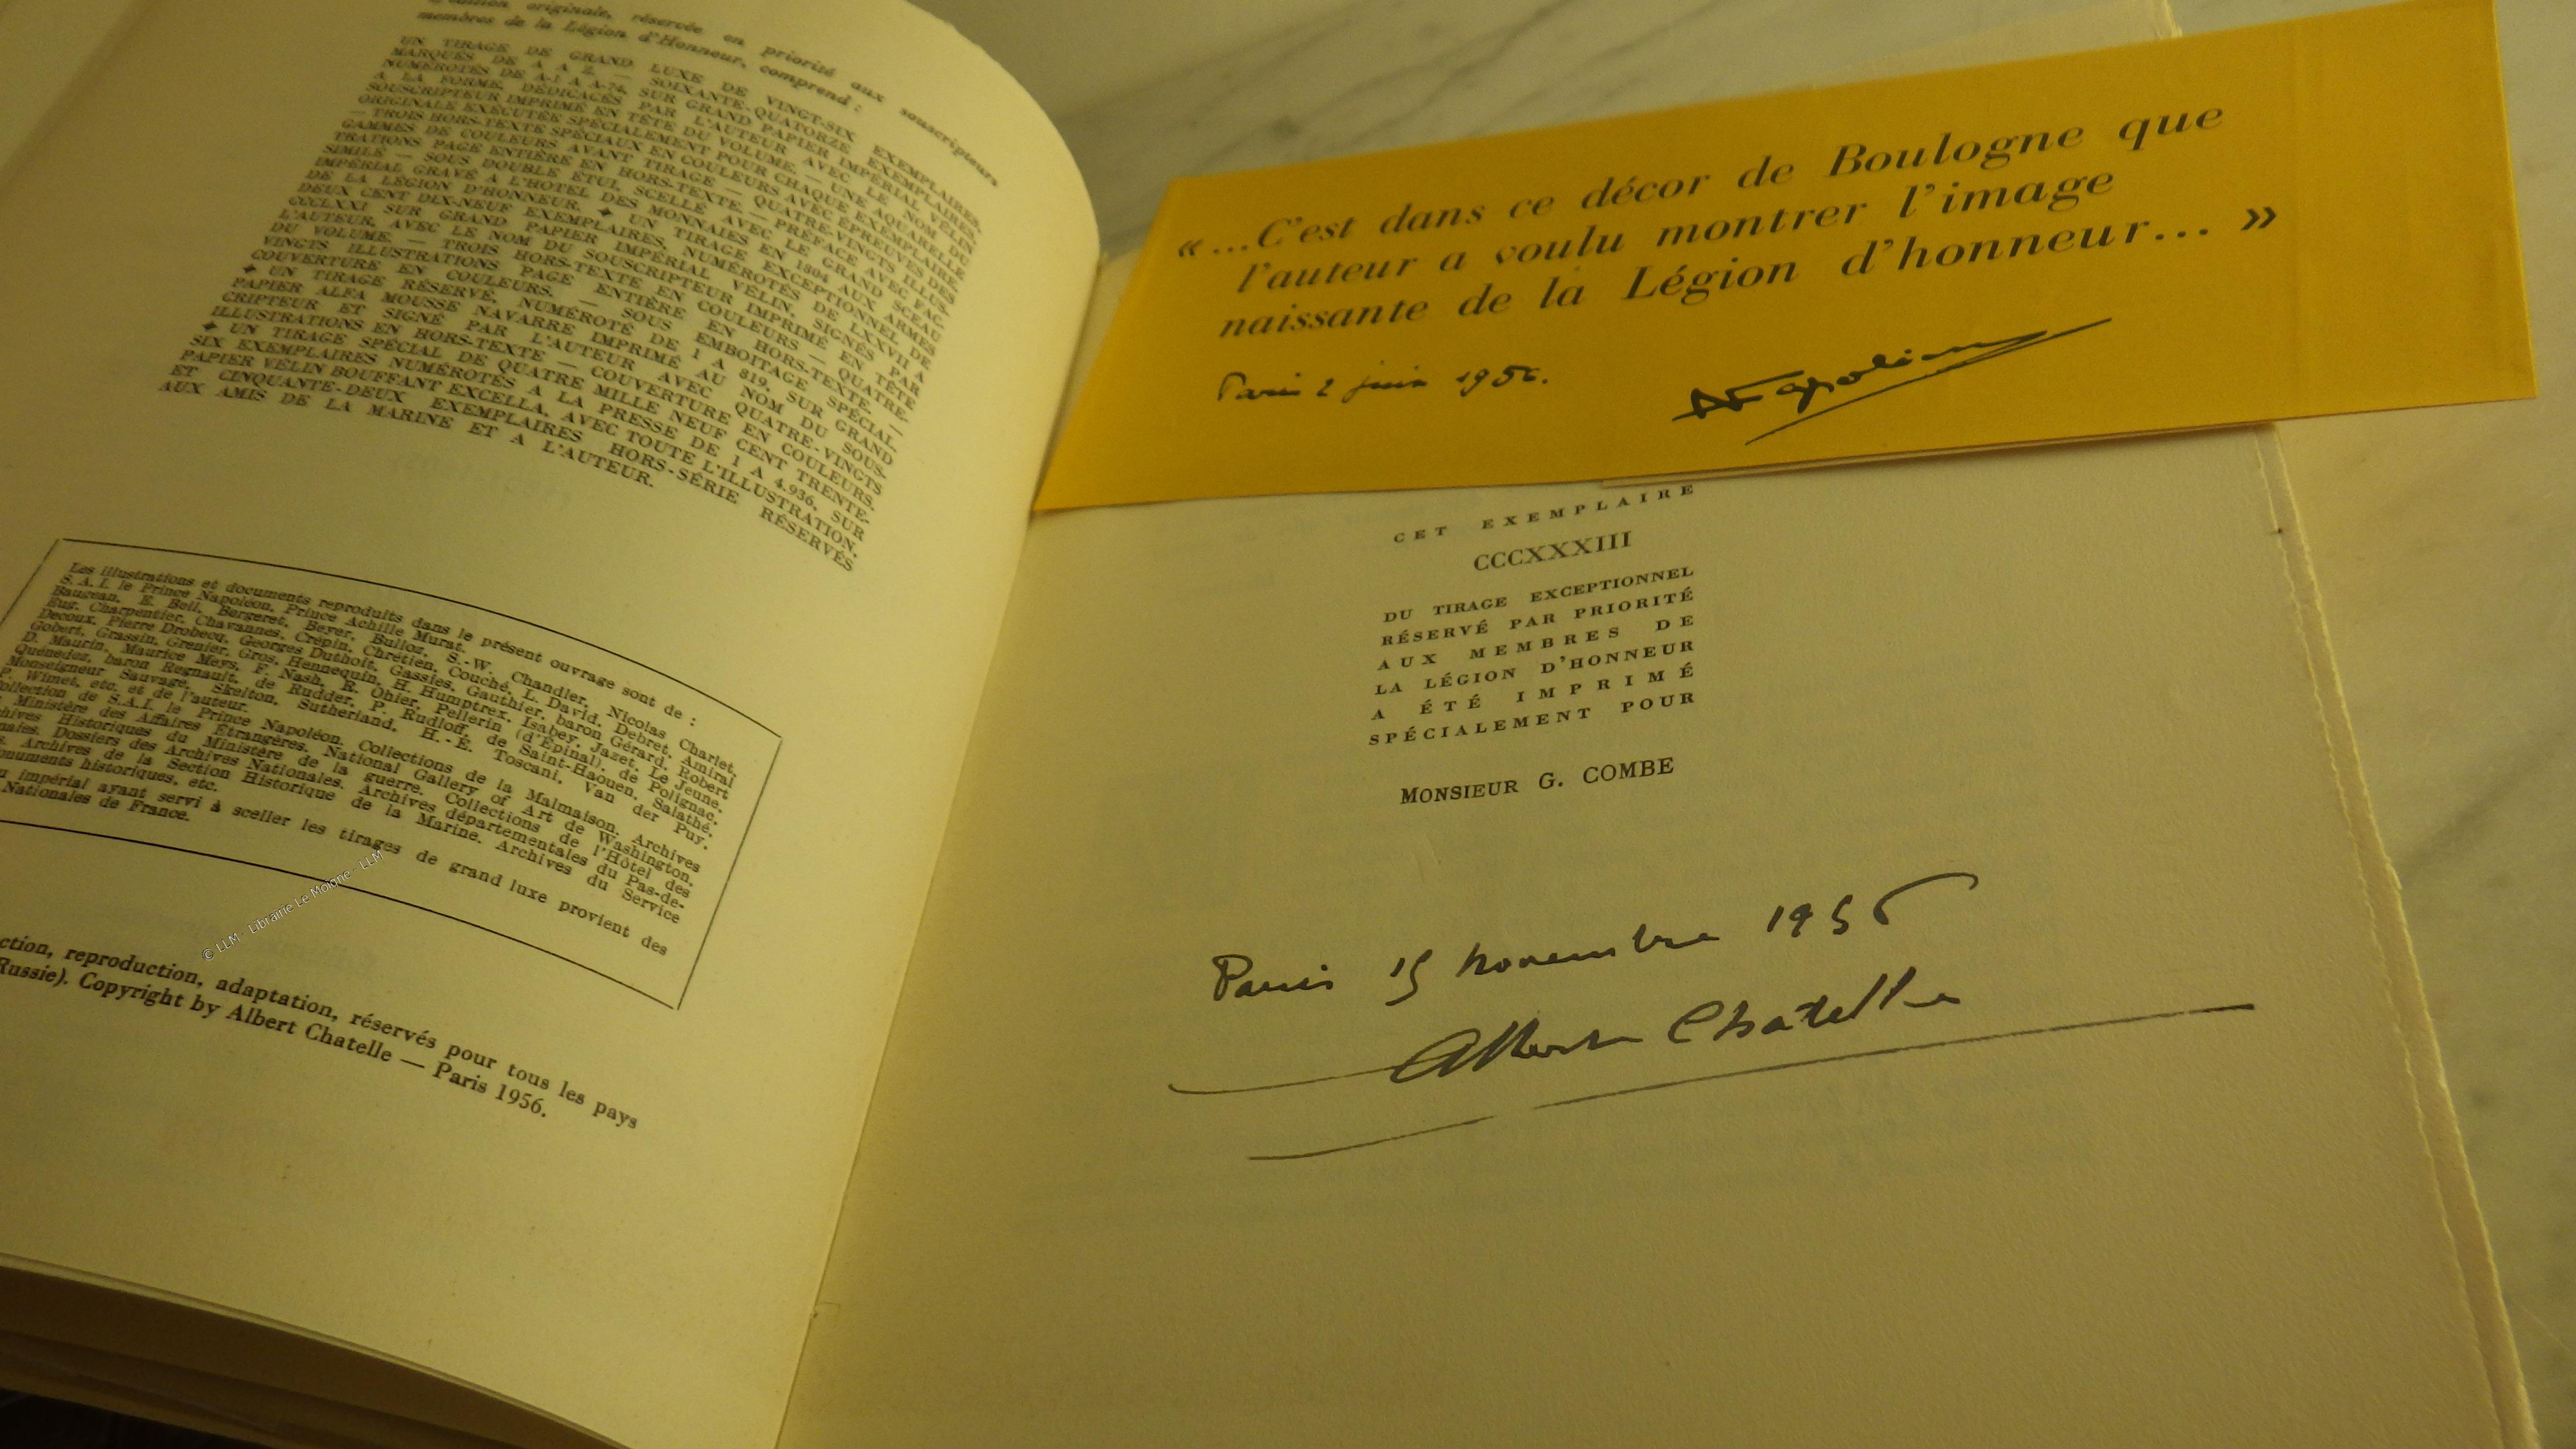 édition originale, réservée en priorité aux souscripteurs
membres de la Légion d'Honneur, comprend :
UN TIRAGE DE GRAND LUXE DE VINGT-SIX EXEMPLAIRES
MARQUÉS DE A A Z. — SOIXANTE-QUATORZE EXEMPLAIRES
NUMÉROTÉS DE A-1 A A-74, SUR GRAND PAPIER IMPÉRIAL VÉLIN
A LA FORME, DÉDICACÉS PAR L'AUTEUR AVEC LE NOM DU
SOUSCRIPTEUR IMPRIMÉ EN TÊTE DU VOLUME. — UNE AQUARELLE
ORIGINALE EXÉCUTÉE SPÉCIALEMENT POUR CHAQUE EXEMPLAIRE.
— TROIS HORS-TEXTE SPÉCIAUX EN COULEURS AVEC ÉPREUVES DES
GAMMES DE COULEURS AVANT TIRAGE — QUATRE-VINGTS ILLUS-
TRATIONS PAGE ENTIÈRE EN HORS-TEXTE — PRÉFACE AVEC FAC-
SIMILÉ — SOUS DOUBLE ÉTUI, SCELLÉ AVEC LE GRAND SCEAU
IMPÉRIAL GRAVÉ A L'HOTEL DES MONNAIES EN 1804 AUX ARMES
DE LA LÉGION D'HONNEUR. ◆ UN TIRAGE EXCEPTIONNEL DE
DEUX CENT DIX-NEUF EXEMPLAIRES, NUMÉROTÉS DE LXXVII A
CCCLXXI SUR GRAND PAPIER IMPÉRIAL VÉLIN, SIGNÉS PAR
L'AUTEUR, AVEC LE NOM DU SOUSCRIPTEUR IMPRIMÉ EN TÊTE
DU VOLUME. — TROIS HORS-TEXTE EN COULEURS — QUATRE-
VINGTS ILLUSTRATIONS PAGE ENTIÈRE EN HORS-TEXTE. —
COUVERTURE EN COULEURS. — SOUS EMBOITAGE SPÉCIAL.
◆ UN TIRAGE RÉSERVÉ, NUMÉROTÉ DE 1 A 819, SUR GRAND
PAPIER ALFA MOUSSE NAVARRE IMPRIMÉ AU NOM DU SOUS-
CRIPTEUR ET SIGNÉ PAR L'AUTEUR AVEC QUATRE-VINGTS
ILLUSTRATIONS EN HORS-TEXTE — COUVERTURE EN COULEURS.
◆ UN TIRAGE SPÉCIAL DE QUATRE MILLE NEUF CENT TRENTE-
SIX EXEMPLAIRES NUMÉROTÉS A LA PRESSE DE 1 A 4.936, SUR
PAPIER VÉLIN BOUFFANT EXCELLA, AVEC TOUTE L'ILLUSTRATION,
ET CINQUANTE-DEUX EXEMPLAIRES HORS-SÉRIE RÉSERVÉS
AUX AMIS DE LA MARINE ET A L'AUTEUR.
Les illustrations et documents reproduits dans le présent ouvrage sont de :
S.A.I. le Prince Napoléon, Prince Achille Murat.
Baugean, E. Bell, Bergeret, Beyer, Bulloz, S.-W. Chandler, Nicolas Charlet,
Eug. Charpentier, Chavannes, Crépin, Chrétien, Couché, L. David, Debret, Amiral
Decoux, Pierre Drobecq, Georges Duthoit, Gassies, Gauthier, baron Gérard, Robert
Gobert, Grassin, Grenier, Gros, Hennequin, H. Humptrex, Isabey, Jazet, Le Jeune,
D. Maurin, Maurice Meys, F. Nash, R. Ohier, Pellerin (d'Épinal), de Polignac,
Quénedez, baron Regnault, de Rudder, P. Rudloff, de Saint-Haouen, Salathé,
Monseigneur Sauvage, Skelton, Sutherland, H.-E. Toscani, Van der Puy,
P. Wimet, etc. et de l'auteur.
Collection de S.A.I. le Prince Napoléon, Collections de la Malmaison, Archives
Ministère des Affaires Étrangères, National Gallery of Art de Washington,
Archives Historiques du Ministère de la guerre, Collections de l'Hôtel des
Dossiers des Archives Nationales, Archives départementales du Pas-de-
Archives de la Section Historique de la Marine, Archives du Service
Monuments historiques, etc.
impérial ayant servi à sceller les tirages de grand luxe provient des
Nationales de France.
© LLM - Librairie Le Moigne - LLM
reproduction, adaptation, réservés pour tous les pays
Russie). Copyright by Albert Chatelle — Paris 1956.
« ...C'est dans ce décor de Boulogne que
l'auteur a voulu montrer l'image
naissante de la Légion d'honneur... »
Paris 2 juin 1956.
Napoléon
CET EXEMPLAIRE
CCCXXXIII
DU TIRAGE EXCEPTIONNEL
RÉSERVÉ PAR PRIORITÉ
AUX MEMBRES DE
LA LÉGION D'HONNEUR
A ÉTÉ IMPRIMÉ
SPÉCIALEMENT POUR
MONSIEUR G. COMBE
Paris 15 novembre 1956
Albert Chatelle